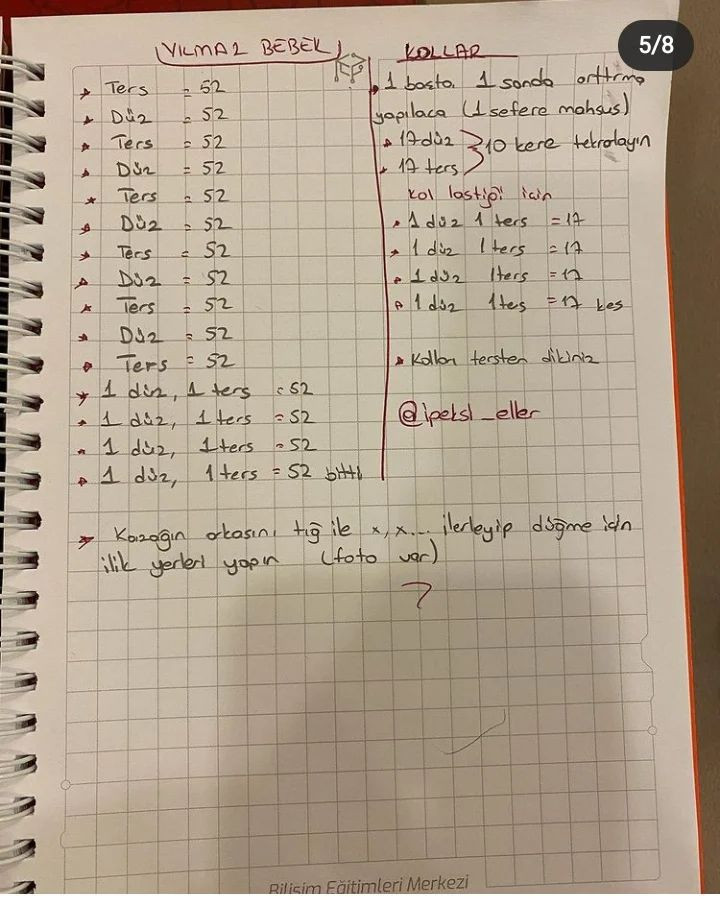 5/8
YILMAZ BEBEK
★ Ters = 52
★ Düz = 52
★ Ters = 52
★ Düz = 52
★ Ters = 52
★ Düz = 52
★ Ters = 52
★ Düz = 52
★ Ters = 52
★ Düz = 52
★ Ters = 52
★ 1 düz, 1 ters = 52
★ 1 düz, 1 ters = 52
★ 1 düz, 1 ters = 52
★ 1 düz, 1 ters = 52 bitti
KOLLAR
★ 1 başta, 1 sonda arttırma
yapılaca (1 sefere mahsus)
★ 17 düz
★ 17 ters
10 kere tekrarlayın
kol lastiği için
★ 1 düz 1 ters = 17
★ 1 düz 1 ters = 17
★ 1 düz 1 ters = 17
★ 1 düz 1 tes = 17 kes
★ Kolları tersten dikiniz
@ipeksi_eller
★ Kazağın arkasını tığ ile x, x.... ilerleyip düğme için
ilik yerleri yapın (foto var)
Bilişim Eğitimleri Merkezi